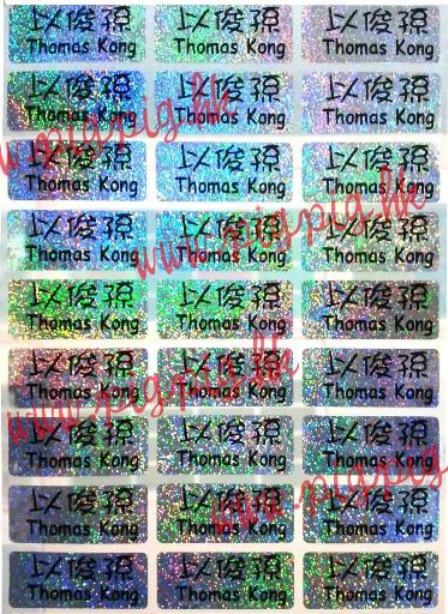 以俊孫 以俊孫 以俊孫
Thomas Kong Thomas Kong Thomas Kong
以俊孫 以俊孫 以俊孫
Thomas Kong Thomas Kong Thomas Kong
www.pigpig.hk
以俊孫 以俊孫 以俊孫
Thomas Kong Thomas Kong Thomas Kong
以俊孫 以俊孫 以俊孫
Thomas Kong Thomas Kong Thomas Kong
www.pigpig.hk
以俊孫 以俊孫 以俊孫
Thomas Kong Thomas Kong Thomas Kong
以俊孫 以俊孫 以俊孫
Thomas Kong Thomas Kong Thomas Kong
www.pigpig.hk
以俊孫 以俊孫 以俊孫
Thomas Kong Thomas Kong Thomas Kong
以俊孫 以俊孫 以俊孫
Thomas Kong Thomas Kong Thomas Kong
www.pigpig
以俊孫 以俊孫 以俊孫
Thomas Kong Thomas Kong Thomas Kong